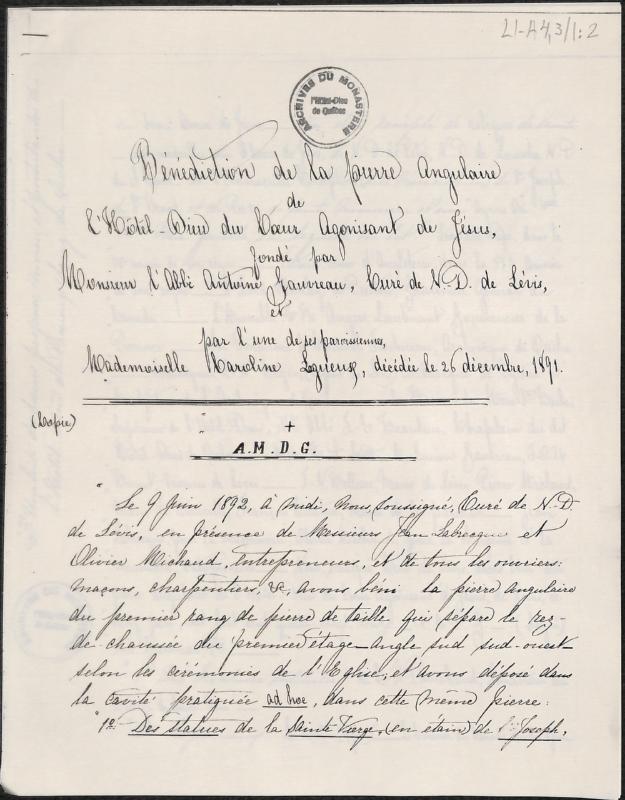 L1-A4,3/1:2
ARCHIVES DU MONASTÈRE
l'Hôtel-Dieu
de Québec
Bénédiction de la pierre Angulaire
de
l'Hôtel-Dieu du Cœur Agonisant de Jésus,
fondé par
Monsieur l'Abbé Antoine Gauvreau, Curé de N.D. de Lévis,
et
par l'une de ses paroissiennes,
Mademoiselle Caroline Lqueux, décédée le 26 décembre, 1891.
(Copie)
+
A.M.D.G.
"Le 9 Juin 1892, à midi, Nous, Soussigné, Curé de N.-D.
de Lévis, en présence de Messieurs Jean Labrecque et
Olivier Michaud, entrepreneurs, et de tous les ouvriers:
maçons, charpentiers, &, avons béni la pierre angulaire
du premier rang de pierre de taille qui sépare le rez
de-chaussée du premier étage-angle sud sud-ouest-
selon les cérémonies de l'Eglise, et avons déposé dans
la cavité pratiquée ad hoc, dans cette même pierre:
"1º Des statues de la Sainte Vierge, (en étain) de St Joseph,